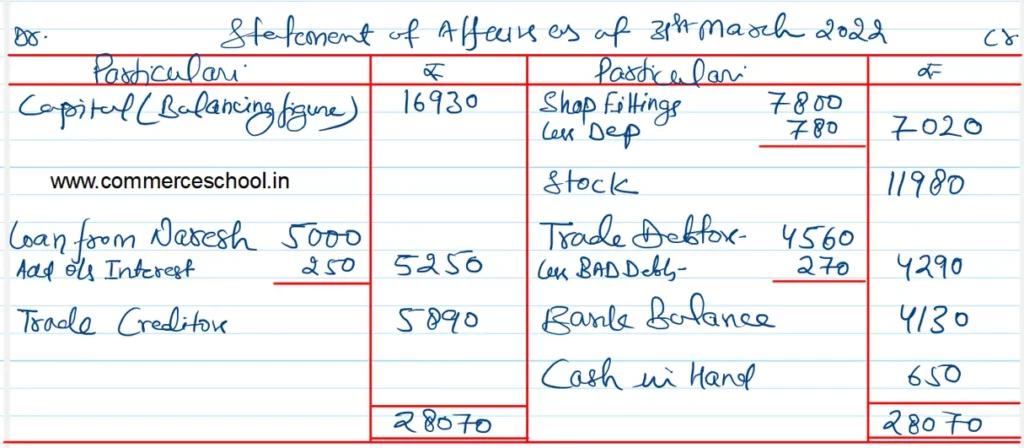 Dr. Statement of Affairs as at 31st March 2022 Cr
Particulars ₹ Particulars ₹
Capital (Balancing figure) 16930 Shop Fittings 7800
Less Dep 780 7020
www.commerceschool.in Stock 11980
Loan from Naresh 5000 Trade Debtors- 4560
Add o/s Interest 250 5250 Less BAD Debts- 270 4290
Trade Creditors 5890 Bank Balance 4130
Cash in Hand 650
28070 28070